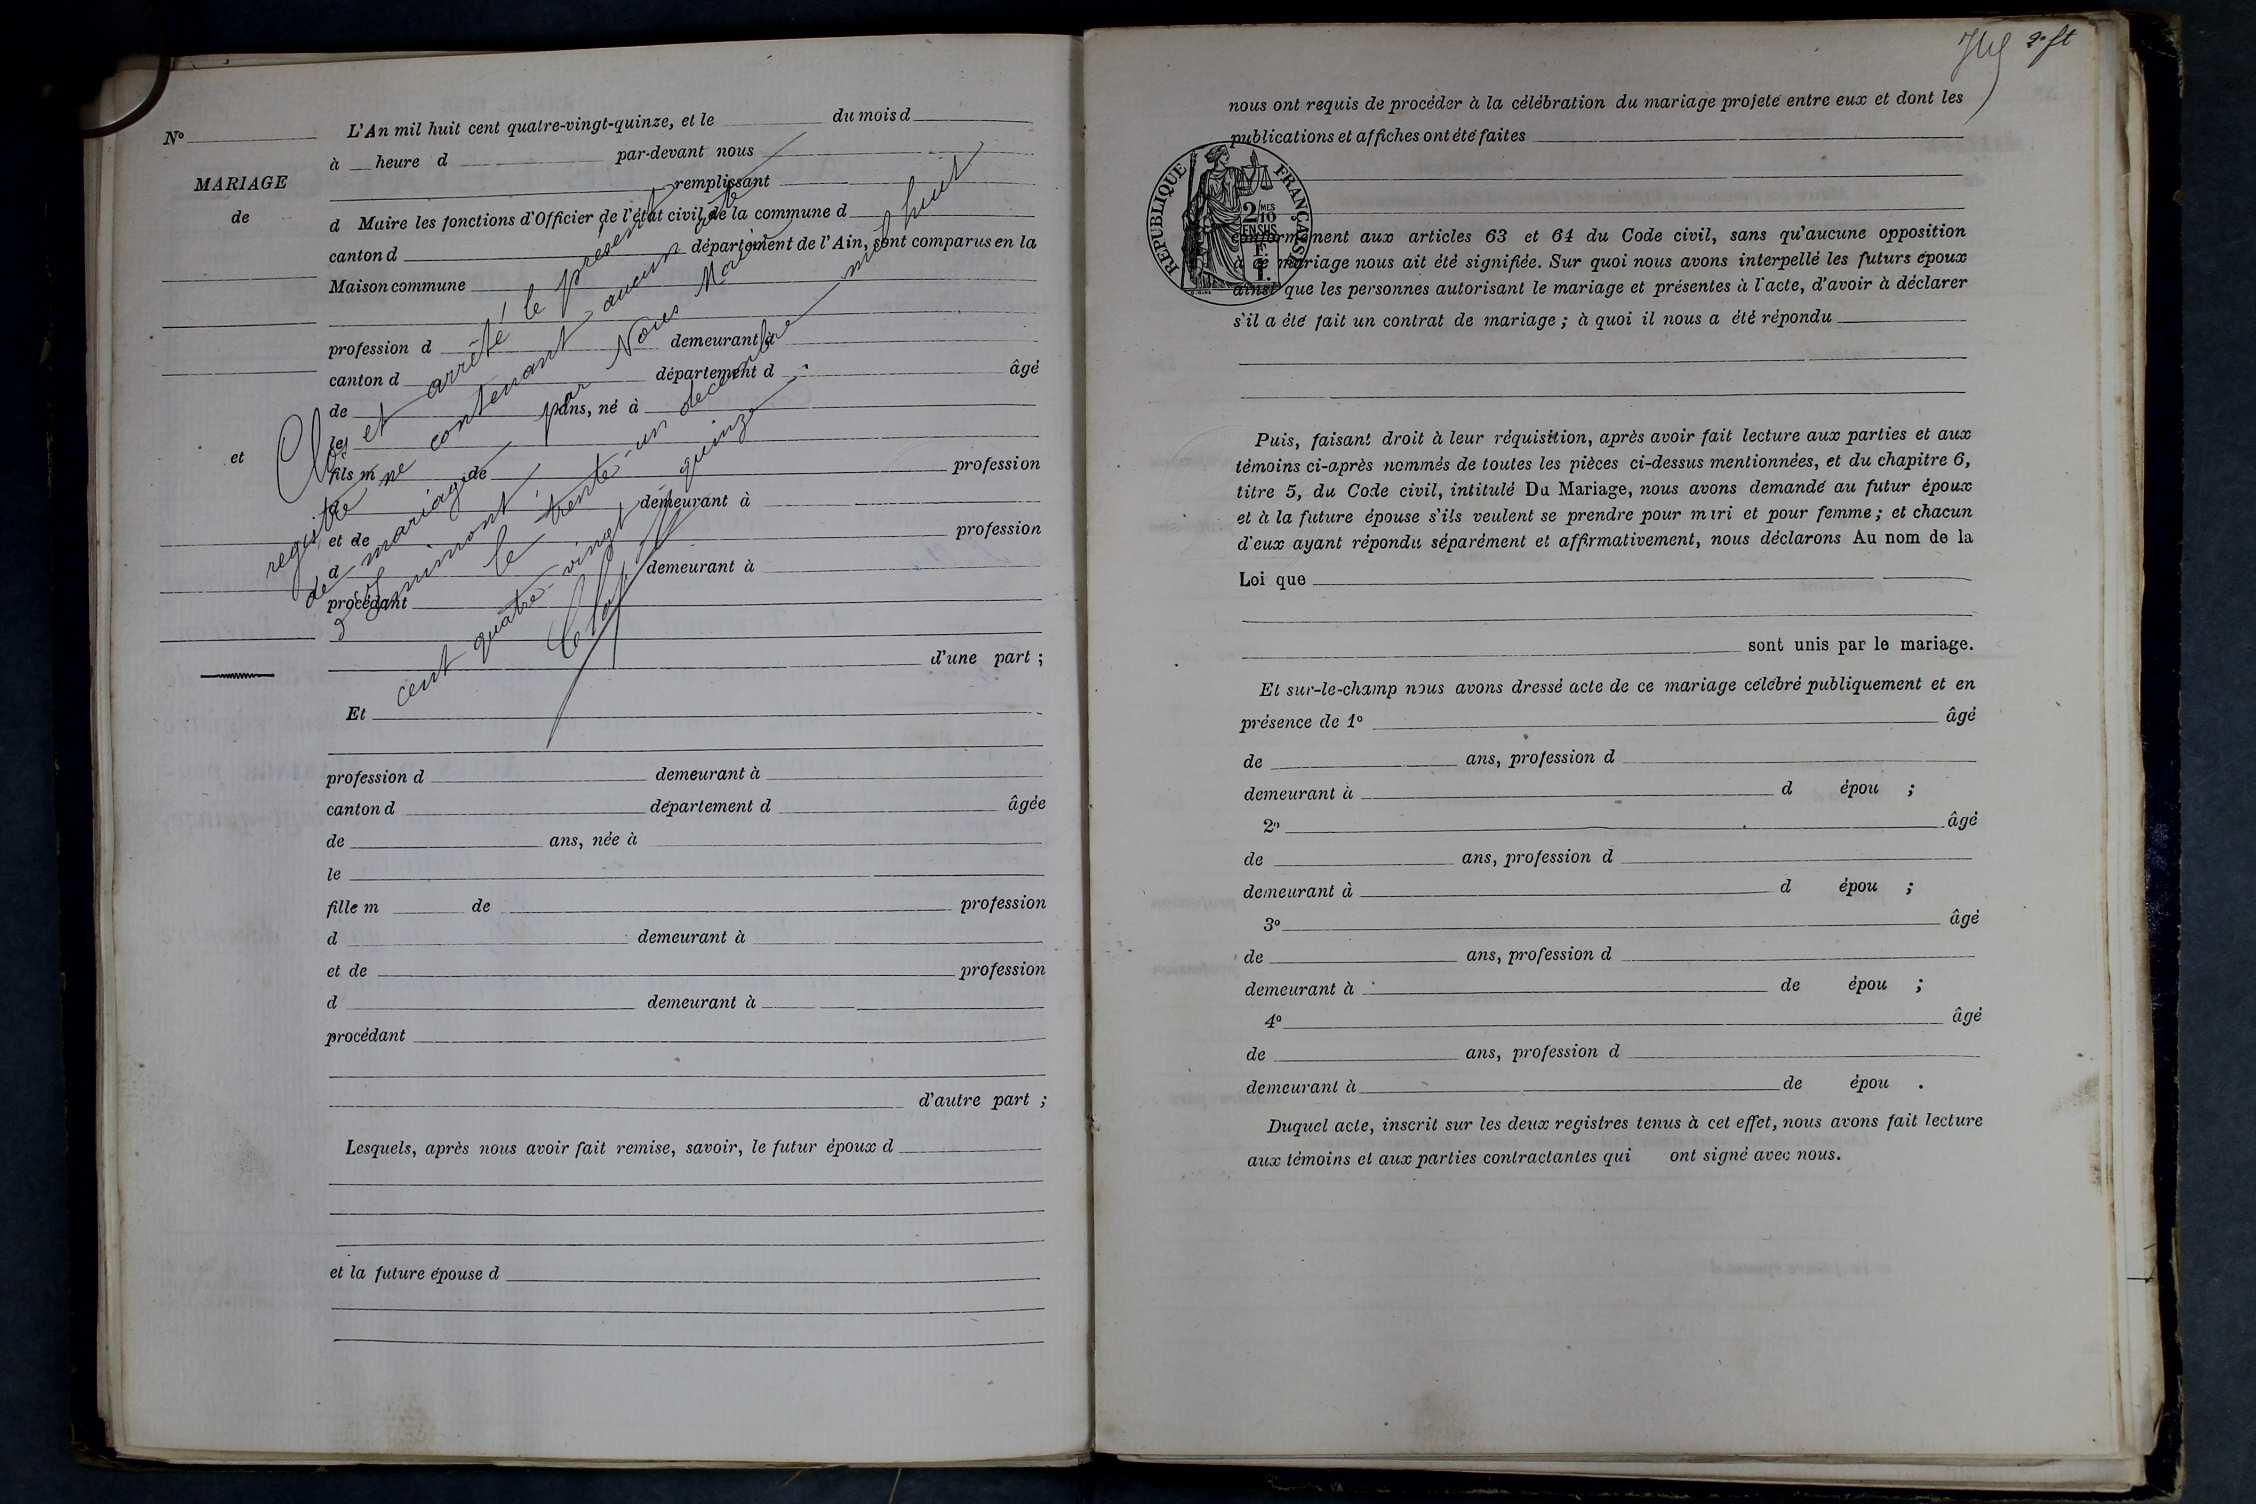 N°
MARIAGE
de
et
L'An mil huit cent quatre-vingt-quinze, et le du mois d
à heure d par-devant nous
remplissant
d Maire les fonctions d'Officier de l'état civil de la commune d
canton d département de l'Ain, sont comparus en la
Maison commune
profession d demeurant à
canton d département d âgé
de ans, né à
le
fils m de profession
d demeurant à
et de profession
d demeurant à
procédant
d'une part ;
Clos et arrêté le présent
registre ne contenant aucun acte
de mariage par Nous Maire
d'Izminont, le trente-un decembre mil huit
cent quatre-vingt quinze.
Et
profession d demeurant à
canton d département d âgée
de ans, née à
le
fille m de profession
d demeurant à
et de profession
d demeurant à
procédant
d'autre part ;
Lesquels, après nous avoir fait remise, savoir, le futur époux d
et la future épouse d
2e ft
nous ont requis de procéder à la célébration du mariage projeté entre eux et dont les
publications et affiches ont été faites
RÉPUBLIQUE FRANÇAISE
2/10 MES
EN SUS
1F.
conformément aux articles 63 et 64 du Code civil, sans qu'aucune opposition
à ce mariage nous ait été signifiée. Sur quoi nous avons interpellé les futurs époux
ainsi que les personnes autorisant le mariage et présentes à l'acte, d'avoir à déclarer
s'il a été fait un contrat de mariage ; à quoi il nous a été répondu
Puis, faisant droit à leur réquisition, après avoir fait lecture aux parties et aux
témoins ci-après nommés de toutes les pièces ci-dessus mentionnées, et du chapitre 6,
titre 5, du Code civil, intitulé Du Mariage, nous avons demandé au futur époux
et à la future épouse s'ils veulent se prendre pour mari et pour femme ; et chacun
d'eux ayant répondu séparément et affirmativement, nous déclarons Au nom de la
Loi que
sont unis par le mariage.
Et sur-le-champ nous avons dressé acte de ce mariage célébré publiquement et en
présence de 1° âgé
de ans, profession d
demeurant à d épou ;
2° âgé
de ans, profession d
demeurant à d épou ;
3° âgé
de ans, profession d
demeurant à de épou ;
4° âgé
de ans, profession d
demeurant à de épou .
Duquel acte, inscrit sur les deux registres tenus à cet effet, nous avons fait lecture
aux témoins et aux parties contractantes qui ont signé avec nous.